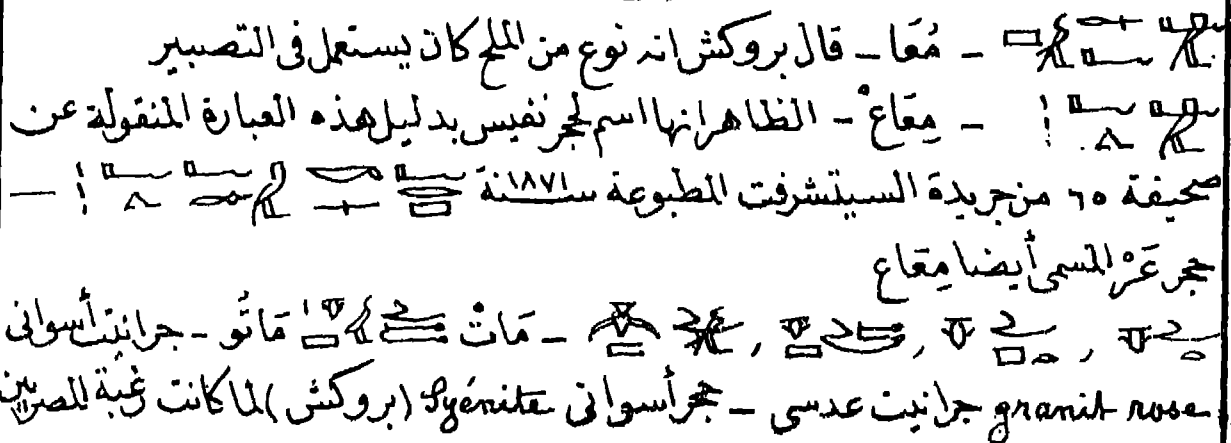 - مُعَا - قال بروكش انه نوع من الملح كان يستعمل فى التصبير
- مِقَاعْ - الظاهر انها اسم لحجر نفيس بدليل هذه العبارة المنقولة عن
صحيفة ٦٥ من جريدة السيتشرفت المطبوعة سنة ١٨٧١ —
حجر عَرْ المسمى أيضا مِقَاع
- مَاتْ مَاتُو - جرانيت أسوانى
granit rose جرانيت عدسى - حجر أسوانى Syénite (بروكش) لما كانت رغبة المصريين